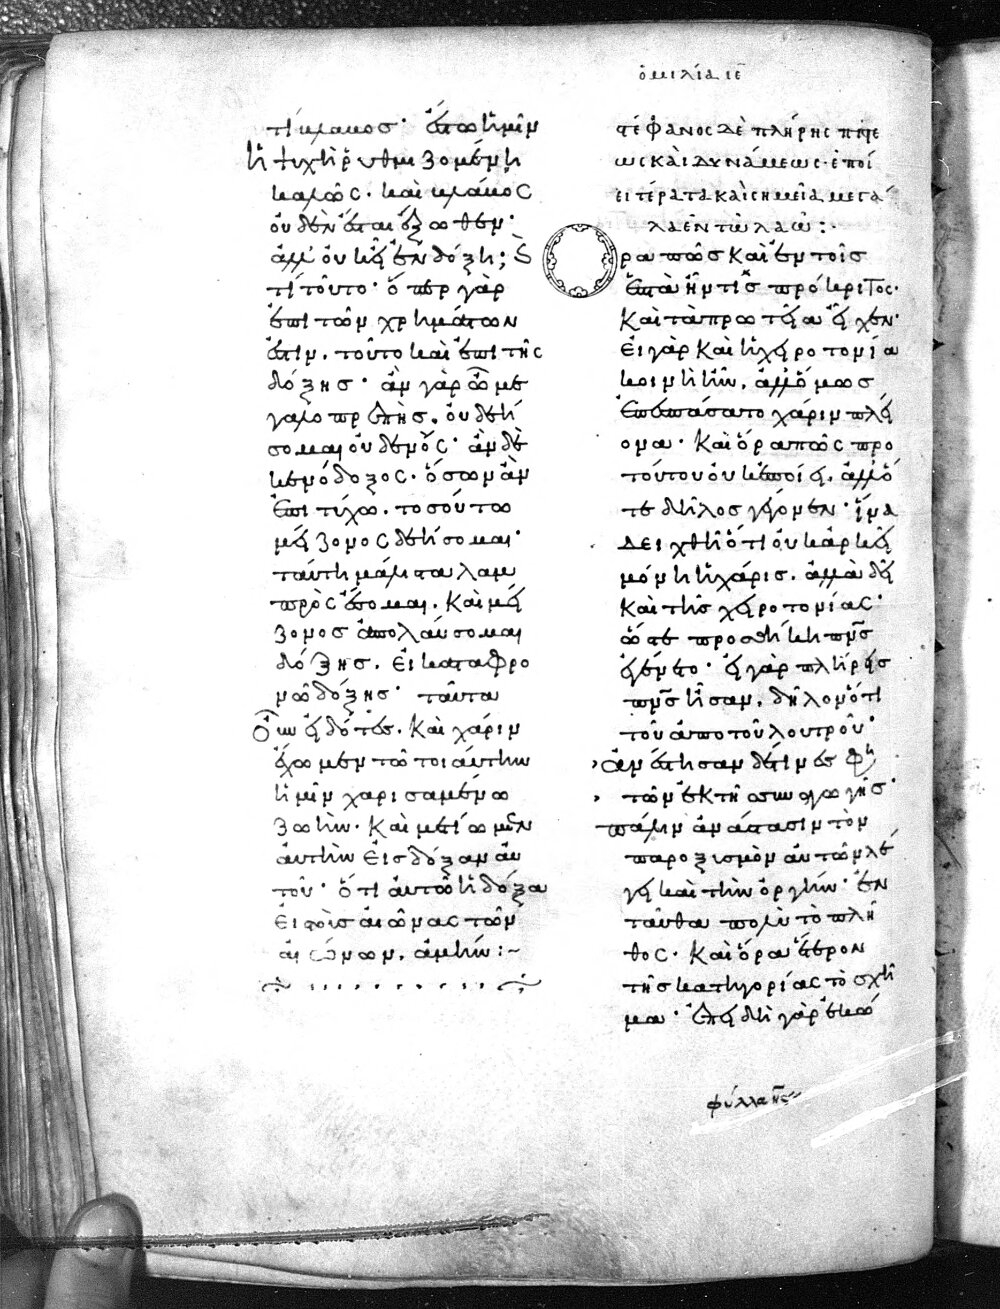 ὁμιλία ιε
τίκλαμος· ἔσται ἡμῖν
ἡ ψυχὴ ῥυθμιζομένη
καλῶς. καὶ κλάμος
οὐδὲν ἔσται ἔξωθεν·
ἀλλ' οὐκ ἐν δόξῃ;
τί τοῦτο· ὅπερ γὰρ
ἐπὶ τῶν χρημάτων
ἐστίν. τοῦτο καὶ ἐπὶ τῆς
δόξης· ἂν γὰρ ὦ με
γαλοπρεπὴς. οὐ δεή
σομαι οὐδενός· ἂν δὲ
κενόδοξος. ὅσων ἂν
ἐπιτύχω. τοσούτω
μείζονος δεήσομαι·
ταύτη μάλιστα λαμ
πρὸς ἔσομαι. καὶ μεί
ζονος ἀπολαύσομαι
δόξης. εἰ καταφρο
νῶ δόξης· ταῦτα
οὖν εἰδότες. καὶ χάριν
ἔχωμεν τῶ τοιαύτην
ἡμῖν χαρισαμένω
ζωήν. καὶ μετίωμεν
αὐτὴν εἰς δόξαν αὐ
τοῦ· ὅτι αὐτῶ ἡ δόξα
εἰς τοὺς αἰῶνας τῶν
αἰώνων. ἀμήν :~
τέφανος δὲ πλήρης πίστε
ως καὶ δυνάμεως· ἐποί
ει τέρατα καὶ σημεῖα μεγά
λα ἐν τῶ λαῶ :·
Ὅρα πῶς καὶ ἐν τοῖς
ἑπτὰ ἦν τις πρόκριτος·
καὶ τὰ πρωτεῖα εἶχεν·
εἰ γὰρ καὶ ἡ χειροτονία
κοινὴ ἦν. ἀλλ' ὅμως
ἐπεσπάσατο χάριν πλεί
ονα· καὶ ὅρα πῶς πρὸ
τούτου οὐκ ἐποίει. ἀλλ' ὅ
τε δῆλος γέγονεν· ἵνα
δειχθῆ ὅτι οὐκ ἀρκεῖ
μόνη ἡ χάρις. ἀλλὰ δεῖ
καὶ τῆς χειροτονίας·
ὥστε προσθήκη πνς
ἐγένετο· εἰ γὰρ πλήρεις
πνς ἦσαν. δηλονότι
τοῦ ἀπὸ τοῦ λουτροῦ·
ἀνέστησαν δέ τινες φη
τῶν ἐκ τῆς συναγωγῆς·
πάλιν ἀνάστασιν τὸν
παροξισμὸν αὐτῶν λέ
γει καὶ τὴν ὀργήν· ἐν
ταῦθα πολὺ τὸ πλῆ
θος. καὶ ὅρα ἕτερον
τῆς κατηγορίας τὸ σχῆ
μα· ἐπειδὴ γὰρ ἐκεῖ